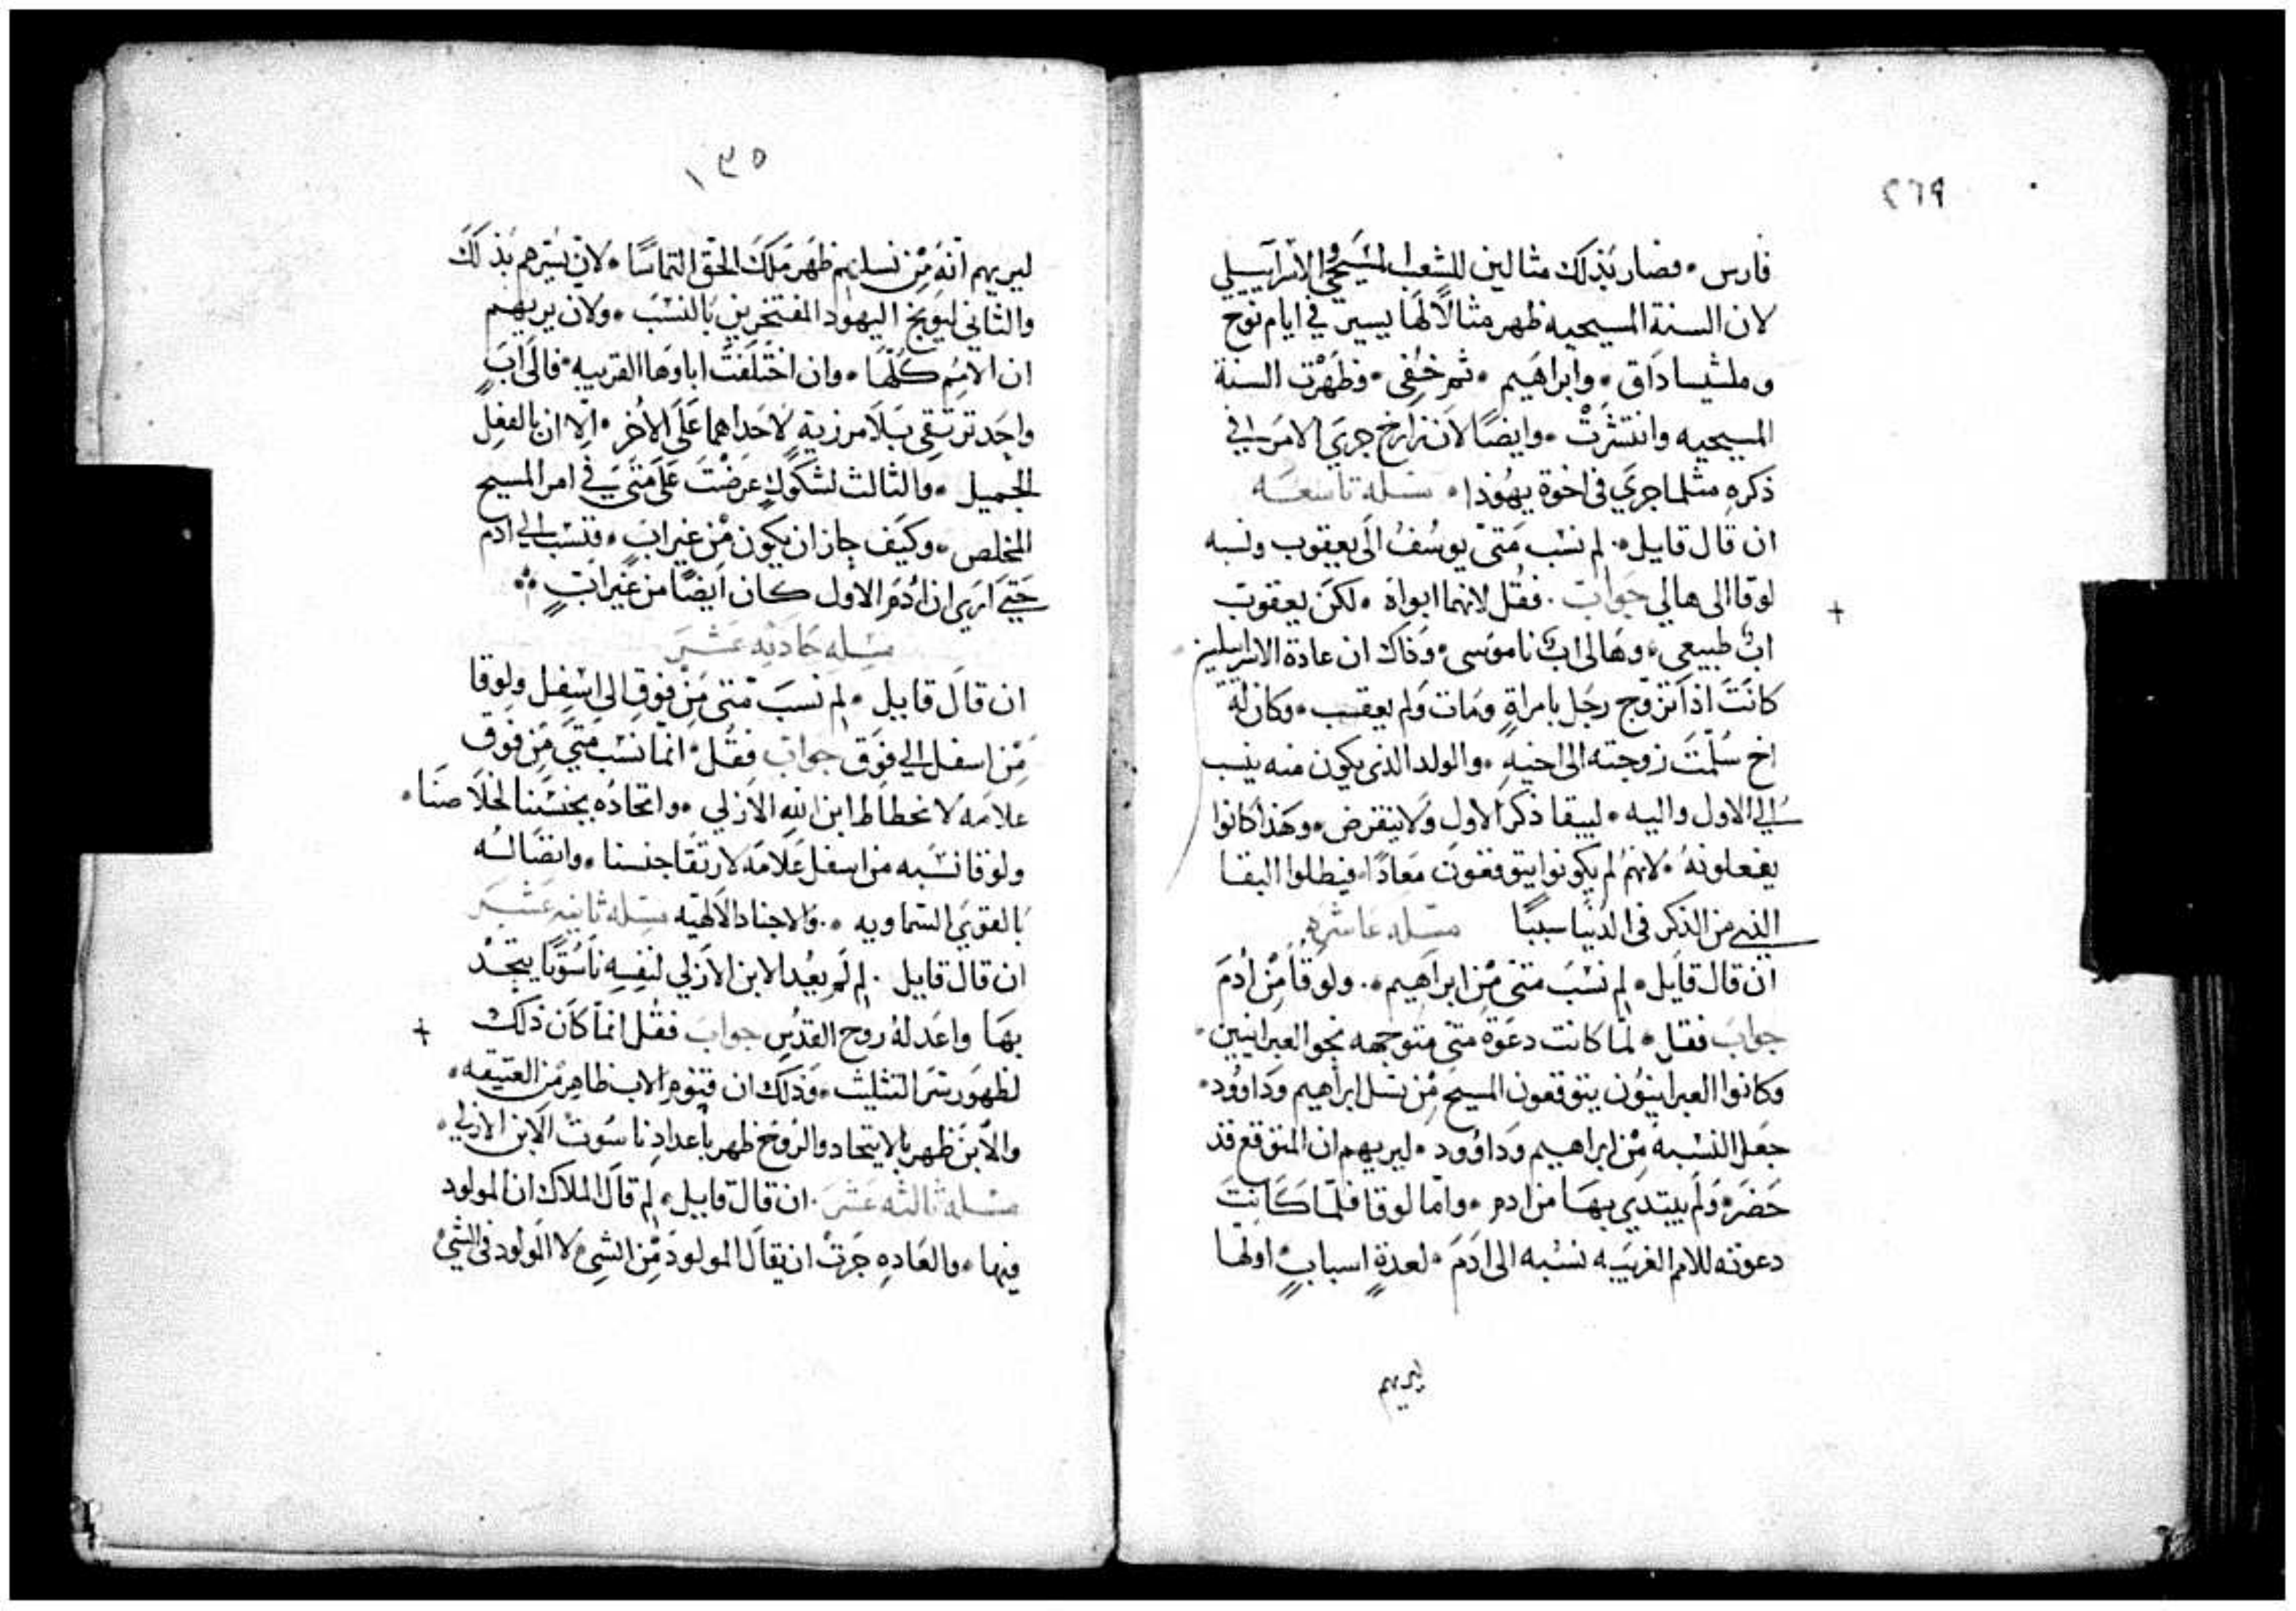 ٢٦٩
فارس. فصار بذلك مثالين للشعب المسيحي والاسراييلي
لان السنة المسيحيه ظهر مثالًا لها يسير في ايام نوح
وملشيساداق. وابراهيم. ثم خفى. وظهرت السنة
المسيحيه وانتشرت. وايضًا لان زارخ جرى الامر في
ذكره مثلما جرى في اخوة يهوذا. مسله تاسعه
ان قال قايل. لم نسب متى يوسف الى يعقوب ونسبه
لوقا الى هالي جواب. فقل لانهما ابواه. لكن يعقوب
اب طبيعي. وهالى اب ناموسى. وذاك ان عادة الاسراييليين
كانت اذا تزوج رجل بامراةٍ ومات ولم يعقب. وكان له
اخ سُلّمت زوجته الى اخيه. والولد الذى يكون منه ينسب
الى الاول واليه. ليبقا ذكر الاول ولا ينقرض. وهذا كانوا
يفعلونه. لانهم لم يكونوا يتوقعون معادًا. فيطلوا البقا
الذى من الذكر فى الدنيا سببًا مسله عاشره
ان قال قايل. لم نسب متى من ابراهيم. ولوقا من ادم
جواب فقل. لما كانت دعوة متى متوجهه نحو العبرانيين.
وكانوا العبرانيون يتوقعون المسيح من نسل ابراهيم وداوود.
جعل النسبه من ابراهيم وداوود. ليريهم ان المتوقع قد
حضر. ولم يبتدي بها من ادم. واما لوقا فلما كانت
دعوته للامم الغريبه نسبه الى ادم. لعدةٍ اسبابٍ اولها
ليريهم
١٣٥
ليريهم انه من نسلهم ظهر ملك الحق التماسًا. لان يسرهم بذلك
والثاني ليوبخ اليهود المفتخرين بالنسب. ولان يريهم
ان الامم كلها. وان اختلفت اباوها القريبه. فالى ابٍ
واحد ترتقي بلا مزية لاحداهما على الاخر. الا ان بالفعل
الجميل. والثالث لشكوك عرضت على متى في امر المسيح
المخلص. وكيف جاز ان يكون من غير ابٍ. فنسب الى ادم
حتى ارى ان ادم الاول كان ايضًا من غير ابٍ
مسله حاديه عشر
ان قال قايل. لم نسب متى من فوق الى اسفل ولوقا
من اسفل الى فوق جواب فقل. انما نسب متى من فوق
علامه لانحطاط ابن الله الازلي. واتحاده بجنسنا لخلاصنا.
ولوقا نسبه من اسفل علامه لارتقا جنسنا. وايضا لسه
بالقوى السماويه. والاجناد الالهيه مسله ثانيه عشر
ان قال قايل. لِم لم يعُد الابن الازلي لنفسه ناسوتًا يتحد
بها واعد له روح القدس جواب فقل انما كان ذلك
لظهور سر التثليث. وذلك ان قنوم الاب ظاهر من العتيقه.
والابن ظهر بالاتحاد والروح ظهر باعداد ناسوت الابن الازلي.
مسله ثالثه عشر. ان قال قايل. لم قال الملاك ان المولود
فيها. والعاده جرت ان يقال المولود من الشى لا المولود فى الشي